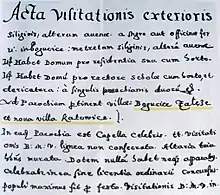 Acta Visitationis exterioris
Siliginis, alteram avenae. a agro aut officina fer
vi. in Bogucice: metretam Siliginis, alterā avenae
Idē Habet Domum pro residentia sua cum horto.
Idē Habet Domū pro rectore scholae cum horto, et
clericatura: à singulis parochianis duos
Ad Parochiam pertinet villae: Bogucice Załęże
et noua villa Katowice.
In eadē Parochia est Capella Celebris. tt. Visitati
onis B. M. V. lignea non consecrata. Altaria tria
Dotem nullā habet neqȝ
Celebratur in ea sine licentia ordinarii concursu
populi maximus fit p festo. Visitationis B. M. V.